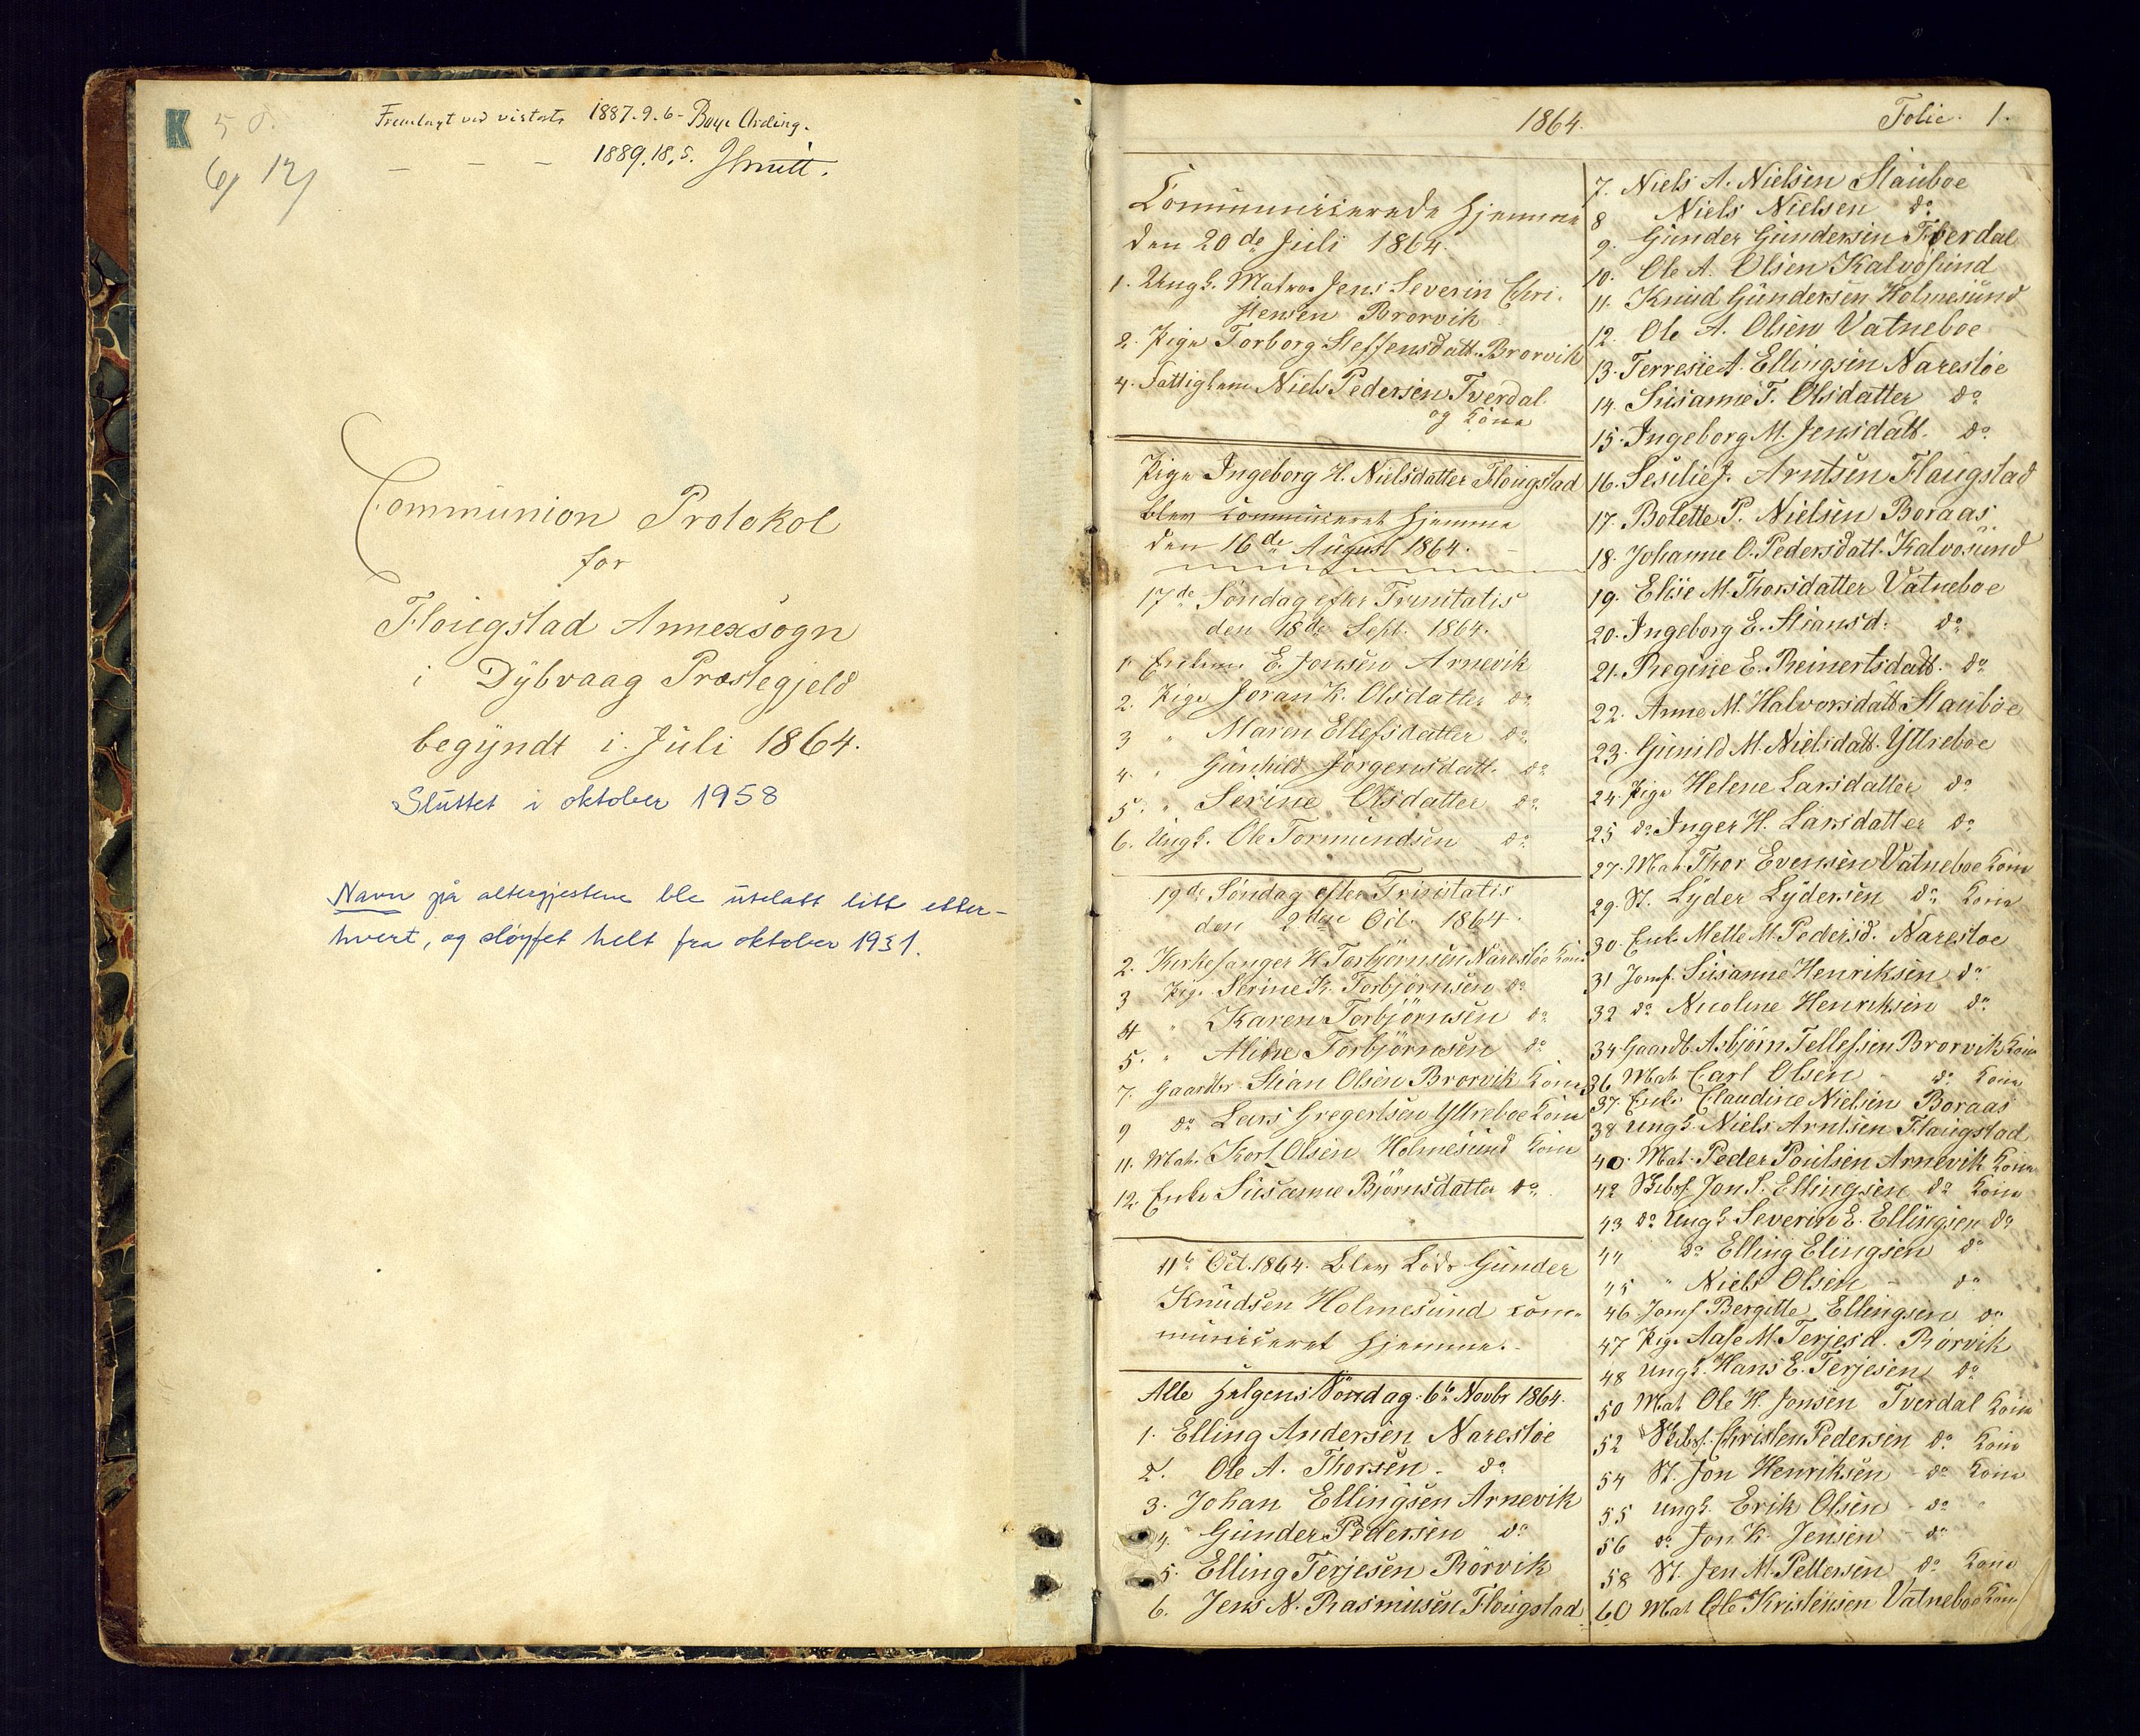 K 5
6/ 12/
Fremlagt ved visitats 1887.9.6 - Boye Arding.
– – – 1889.18.5. Smitt.
Communion Protokol
for
Flougstad Annexsogn
i Dÿbvaag Præstegjeld
begÿndt i Juli 1864.
Sluttet i oktober 1958
Navn på altergjestene ble utelatt litt etter-
hvert, og sløyfet helt fra oktober 1931.
1864.
Folie. 1.
Communicerede hjemme
den 20de Juli 1864.
1. Ungk. Matros Jens Severin Chri-
stensen Brorvik
2. Pige Torborg Steffensdatt. Brorvik
4. Fattiglem Niels Pedersen Tverdal
og Kone
Pige Ingeborg H. Nielsdatter Flougstad
blev communiceret hjemme
den 16de August 1864. –
17de Søndag efter Trinitatis
den 18de Sept. 1864.
1. Enkem. E. Jonsen Arnevik
2. Pige Joran K. Olsdatter do
3 " Maren Ellefsdatter do
4. " Gunhild Jørgensdatt. do
5. " Serine Olsdatter do
6. Ungk. Ole Tormundsen do
19de Søndag efter Trinitatis
den 2den Oct. 1864.
2. Kirkesanger H. Torbjørnsen Narestøe Kone
3 Pige Serine K. Torbjørnsen do
4 " Karen Torbjørnsen do
5. " Aline Torbjørnsen do
7. Gaardbr. Stian Olsen Brorvik Kone
9 do Lars Gregertsen Ÿttreboe Kone
11. Mat. Korl Olsen Holmesund Kone
12. Enke Susanne Bjørnsdatter do
11te Oct. 1864. blev Lods Gunder
Knudsen Holmesund com-
municeret hjemme.
Alle Helgens Søndag. 6te Novbr 1864.
1. Elling Andersen Narestøe
2. Ole A. Thorsen - do
3. Johan Ellingsen Arnevik
4. Gunder Pedersen do
5. Elling Terjesen Rörvik
6. Jens N. Rasmusen Flougstad
7. Niels A. Nielsen Stauboe
8 Niels Nielsen do
9. Gunder Gundersen Tverdal
10. Ole A. Olsen Kalvøsund
11. Knud Gundersen Holmesund
12. Ole A. Olsen Vatneboe
13. Terresie A. Ellingsen Narestøe
14. Susanne T. Olsdatter do
15. Ingeborg M. Jensdatt. do
16. Sesilie J. Arntsen Flaugstad
17. Bolette P. Nielsen Boraas
18. Johanne O. Pedersdatt. Kalvøsund
19. Elise M. Thorsdatter Vatneboe
20. Ingeborg E. Stiansd. do
21. Regine E. Reinertsdatt. do
22. Anne M. Halvorsdatt. Stauböe
23. Gunild M. Nielsdatt. Ÿttreboe
24. Pige Helene Larsdatter do
25 do Inger H. Larsdatter do
27. Mat Thor Evensen Vatneboe Kone
29. St. Lÿder Lÿdersen do Kone
30. Enke Mette M. Pedersd. Narestøe
31 Jomf. Susanne Henriksen do
32 do Nicoline Henriksen do
34. Gaardb. Asbjørn Tellefsen Brorvik Kone
36 Mat Carl Olsen - do Kone
37. Enke Claudine Nielsen Boraas
38 Ungk. Niels Arntsen Flaugstad
40. Mat. Peder Poulsen Arnevik Kone
42 Skibsf. Jon S. Ellingsen do Kone
43 do Ungk Severin E. Ellingsen do
44 do Elling Elingsen do
45 " Niels Olsen - do
46. Jomf Bergitte Ellingsen do
47 Pige Aase M. Terjesd. Rörvik
48 Ungk. Hans E. Terjesen do
50 Mat Ole H. Jonsen Tverdal Kone
52 Skibsf. Christen Pedersen do Kone
54 St. Jon Henriksen - do Kone
55 Ungk. Erik Olsen - do
56 do Jon K. Jensen - do
58 St. Jen M. Pettersen do Kone
60 Mat Ole Kristensen Vatneboe Kone